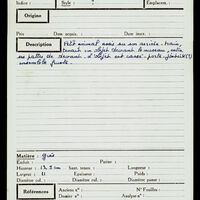 Indice : Style : Emplacem. :
Origine
Prix : Date acquis. : Date invent. :
Description Petit animal assis sur son arrière-train,
tenant un objet devant le museau, entre
ses pattes de devant. L'objet est cassé. porte-plantes (?)
Matière : grès
Enduit : Patine :
Hauteur : 13,5 cm haut. totale : Longueur :
Largeur : 11 Epaisseur : Poids :
Diamètre col. : Diamètre panse :
Références Anciens nos : N° Fouilles :
Dossier : Analyse n° :